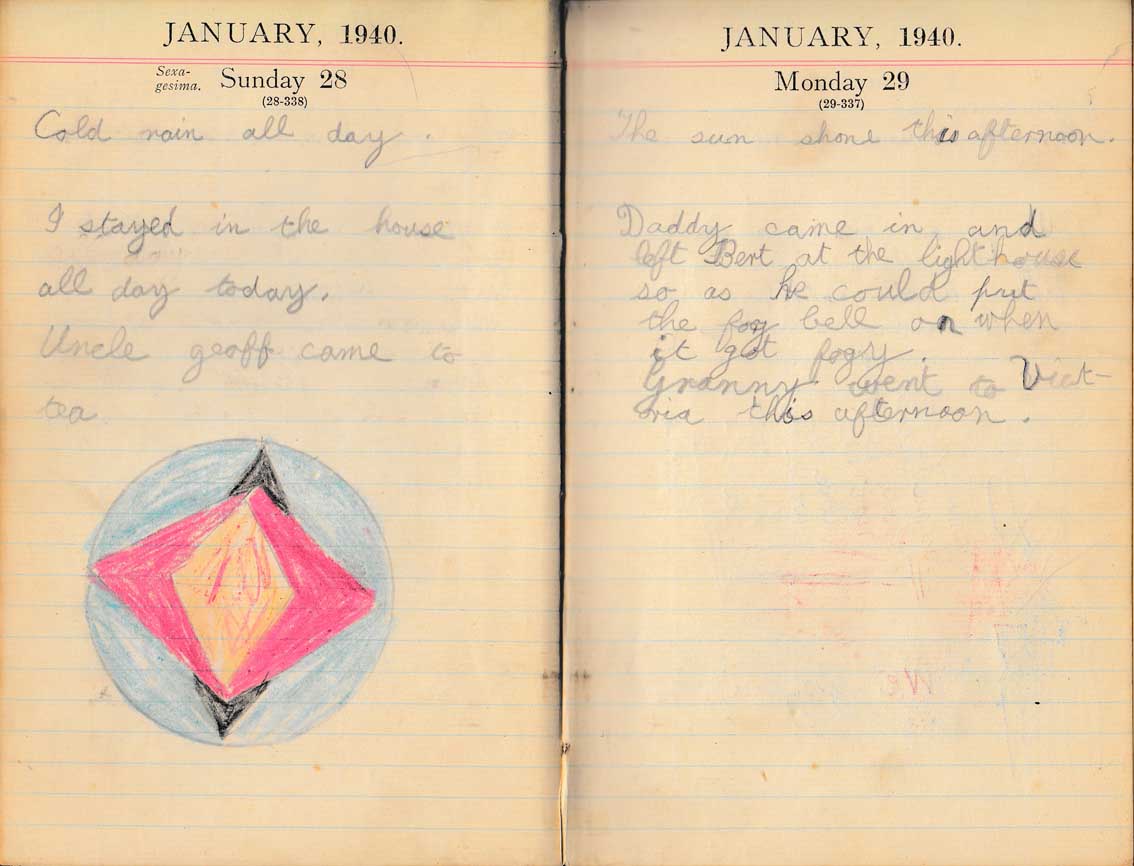 JANUARY, 1940.
Sexa-
gesima.
Sunday 28
(28-338)
Cold rain all day.
I stayed in the house
all day today.
Uncle geoff came to
tea
JANUARY, 1940.
Monday 29
(29-337)
The sun shone this afternoon.
Daddy came in and
left Bert at the lighthouse
so as he could put
the fog bell on when
it got fogy.
Granny went to Vict-
oria this afternoon.